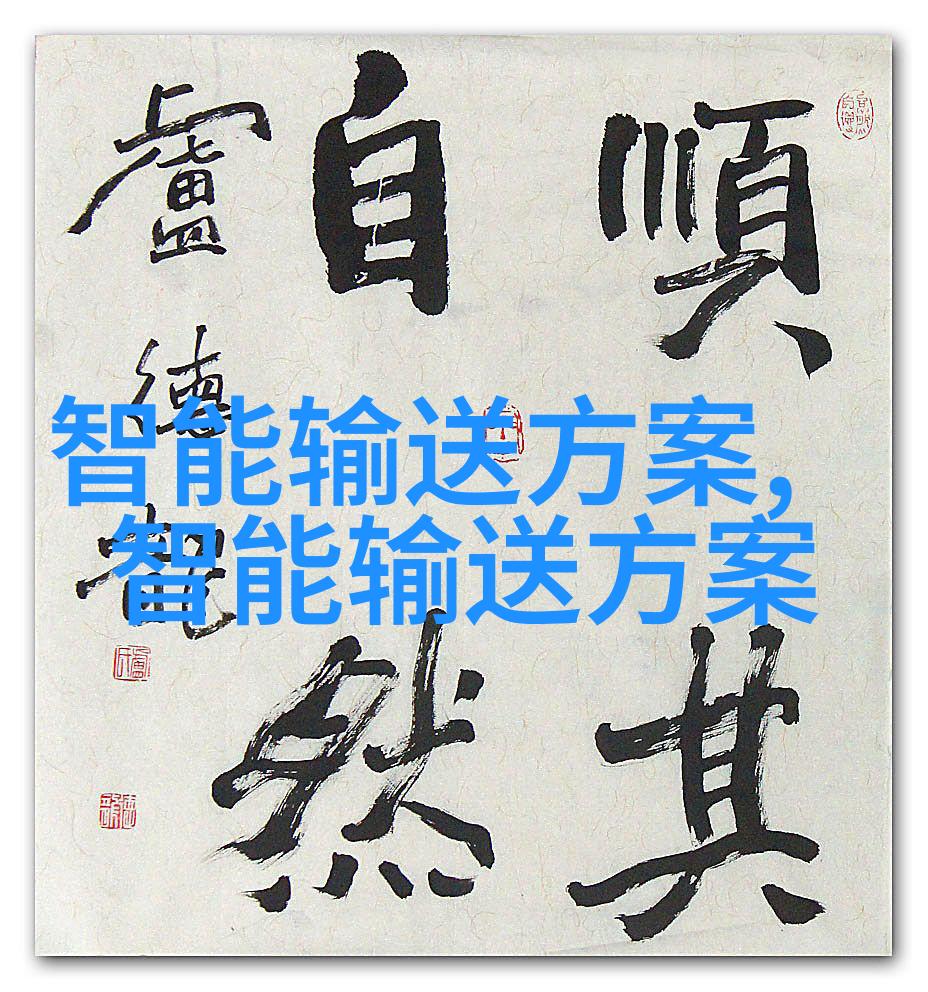 順其
自然
盧德
智能输送方案,
智能输送方案